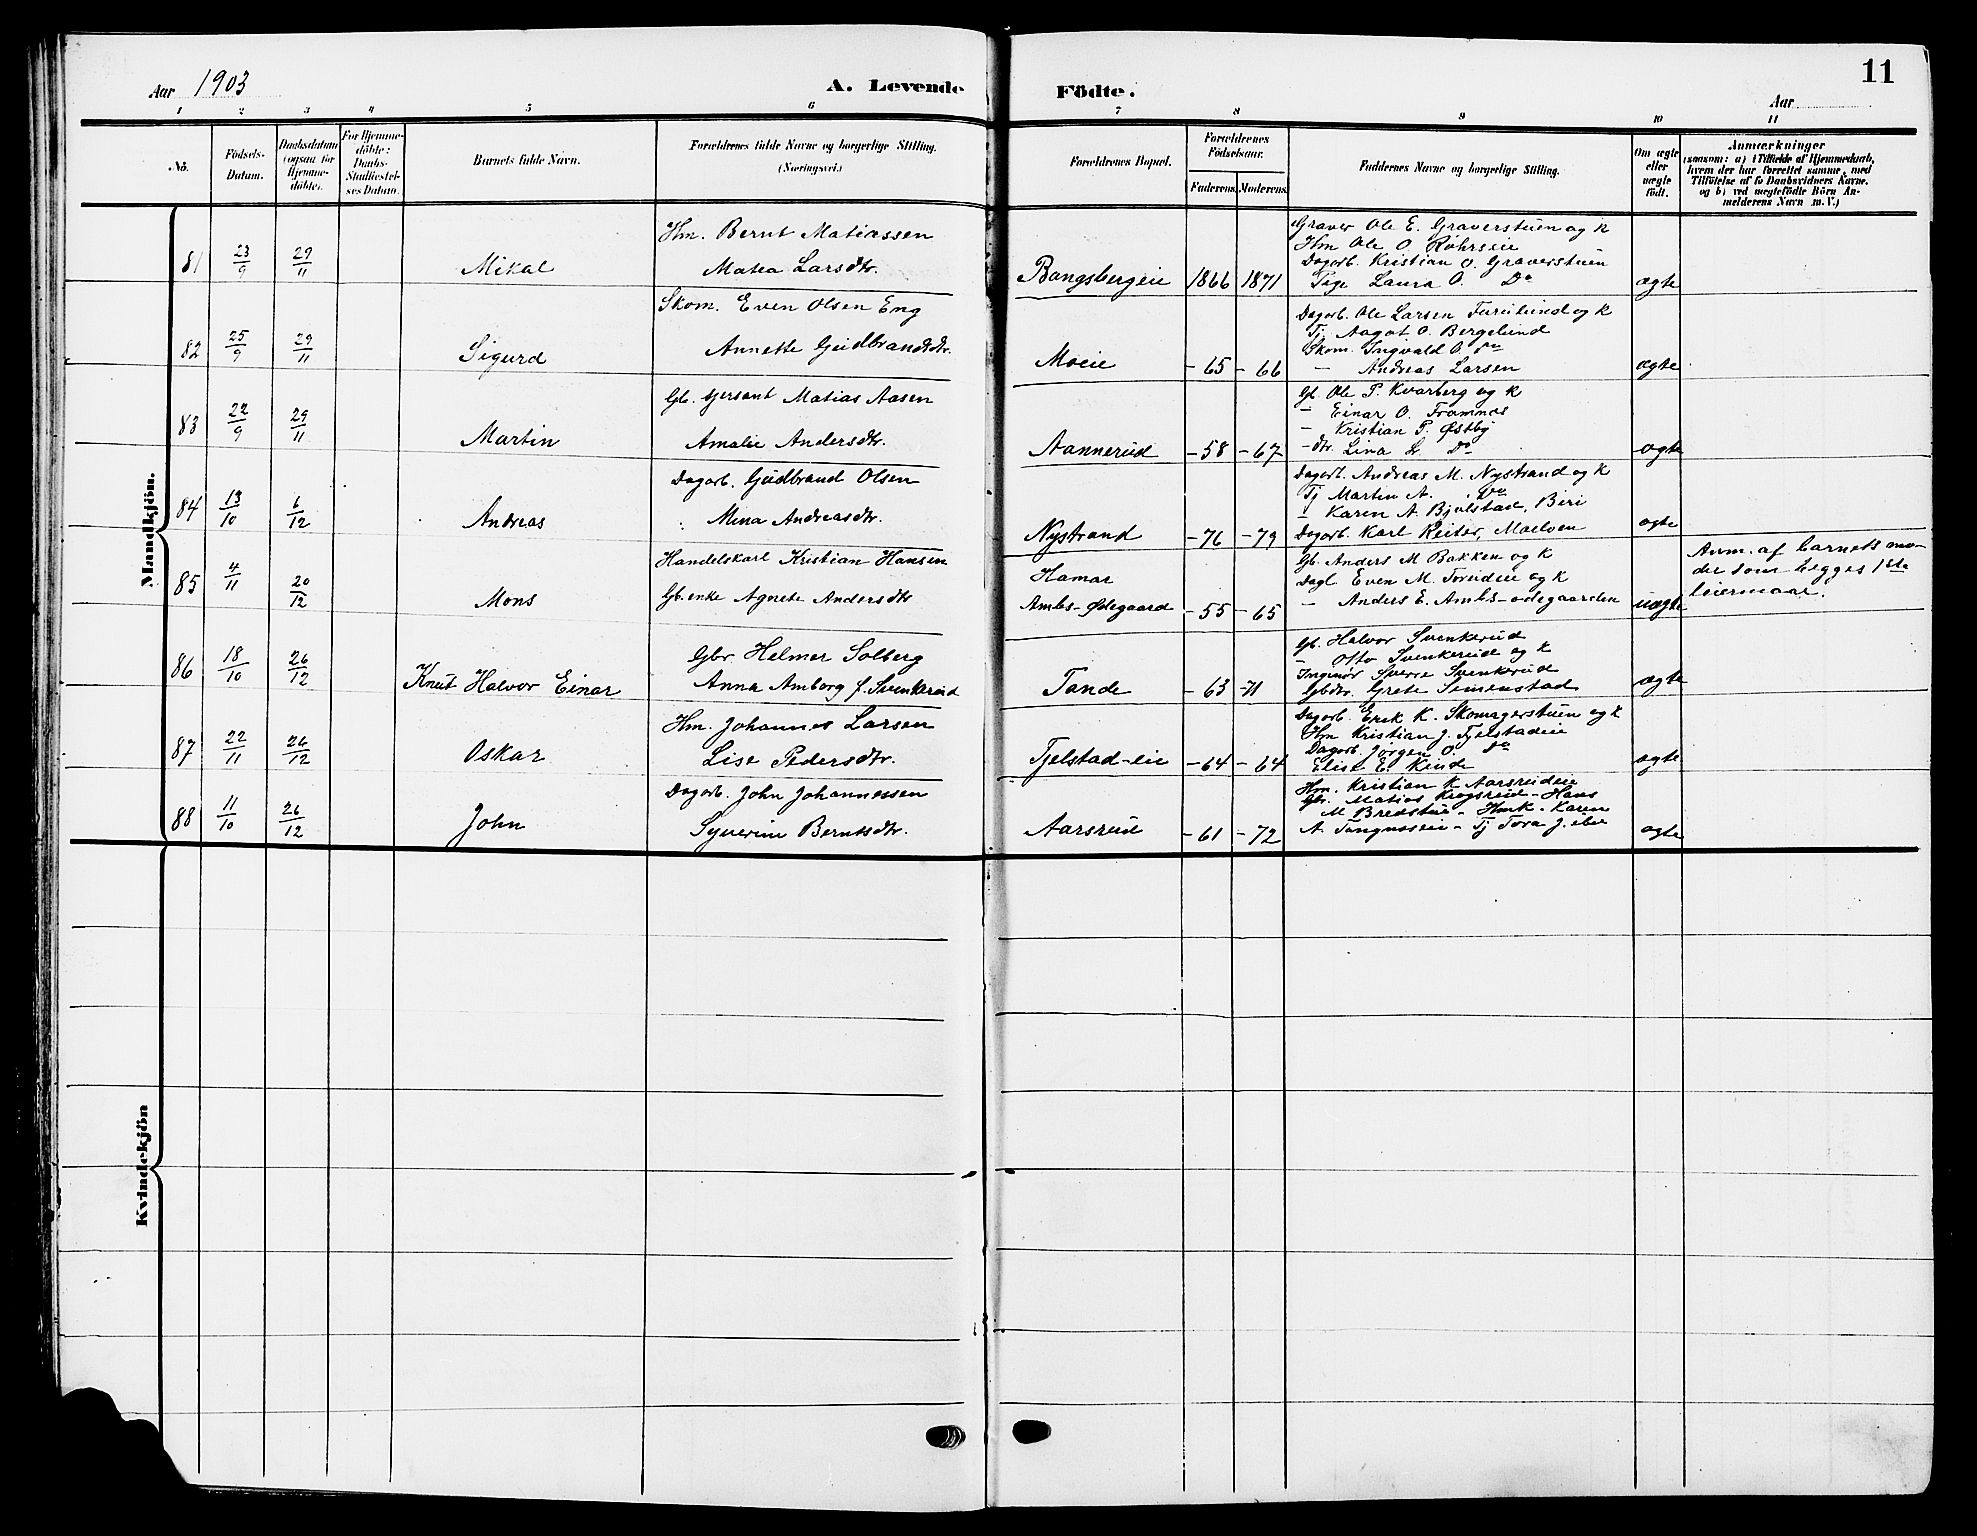 11
Aar 1903
A. Levende
Födte.
Aar
1 2 3 4 5 6 7 8 9 10 11
No.
Födsels-
Datum.
Daabsdatum
(ogsaa for
Hjemme-
döbte).
For Hjemme-
döbte:
Daabs-
Stadfæstel-
ses Datum.
Barnets fulde Navn.
Forældrenes fulde Navne og borgerlige Stilling.
(Næringsvei.)
Forældrenes Bopæl.
Forældrenes
Födselsaar.
Faderens. Moderens.
Faddernes Navne og borgerlige Stilling.
Om ægte
eller
uægte
födt.
Anmærkninger
(saasom: a) i Tilfælde af Hjemmedaab,
hvem der har forrettet samme, med
Tilföielse af to Daabsvidners Navne,
og b) ved uægtefödte Börn An-
melderens Navn m. V.)
Mandkjön.
81 23/9 29/11 Mikal
Hm. Bernt Matiassen
Matea Larsdtr.
Bangsbergeie 1866 1871
Graver Ole E. Graverstuen og k
Hm Ole O. Røhrseie
Dagarb. Kristian O. Graverstuen
Pige Laura O. Do
ægte
82 25/9 29/11 Sigurd
Skom. Even Olsen Eng
Annette Gudbrandsdtr.
Moeie - 65 - 66
Dagarb. Ole Larsen Furulund og k
Tj. Aagot O. Bergelund
Skom. Ingvald O. Do
- Andreas Larsen
ægte
83 22/9 29/11 Martin
Gb. Gersont Matias Aasen
Amalie Andersdtr.
Aannerud - 58 - 67
Gb. Ole P. Kvarberg og k
- Einar O. Framnes
- Kristian P. Østby
- dtr. Lina L. Do
ægte
84 13/10 6/12 Andreas
Dagarb. Gudbrand Olsen
Mina Andreasdtr.
Nystrand - 76 - 79
Dagarb. Andreas M. Nystrand og k
Tj Martin A. Do
- Karen A. Bjølstad, Biri
Dagarb. Karl Reiter, Maelven
ægte
85 4/11 20/12 Mons
Handelskarl Kristian Hansen
Gb. enke Agnete Andersdtr
Hamar
Ambs-Ødegaard - 55 - 65
Gb. Anders M Bakken og k
Dagl. Even M. Torudeie og k
- Anders E. Ambs-ødegaarden
uægte
Anm. af barnets mo-
der som begges 1ste
leiermaal.
86 18/10 26/12 Knut Halvor Einar
Gbr. Helmer Solberg
Anna Amborg f. Svenkerud
Tande - 63 - 71
Gb. Halvor Svenkerud
- Otto Svenkerud og k
Ingeniør Sverre Svenkerud
Gbdtr. Grete Simenstad
ægte
87 22/11 26/12 Oskar
Hm. Johannes Larsen
Lise Pedersdtr.
Tjelstad-eie - 64 - 64
Dagarb. Erik K. Skomagerstuen og k
Hm Kristian J. Tjelstadeie
Dagarb. Jørgen O. Do
Elise E. Kinde
ægte
88 11/10 26/12 John
Dagarb. John Johannessen
Syverine Berntsdtr.
Aarsrud - 61 - 72
Hm. Kristian K Aarsrudeie
Gbr. Matias Krogsrud - Hans
M Bredstue - Hmk. Karen
A. Tangneseie - Tj Tora J. ibm
ægte
Kvindekjön